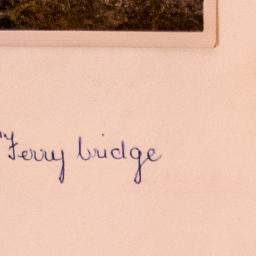 "Ferry bridge